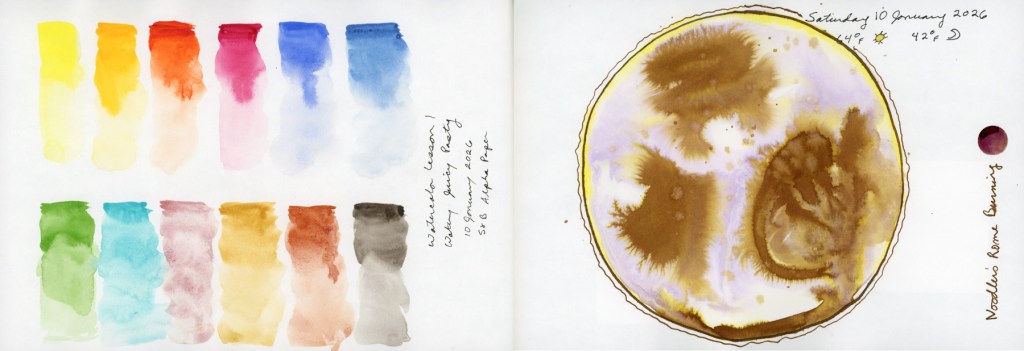 Watercolor Lesson 1
Watery Juicy Pasty
10 January 2026
S&B Alpha Paper
Saturday 10 January 2026
64°F 42°F
Noodler's Rome Burning